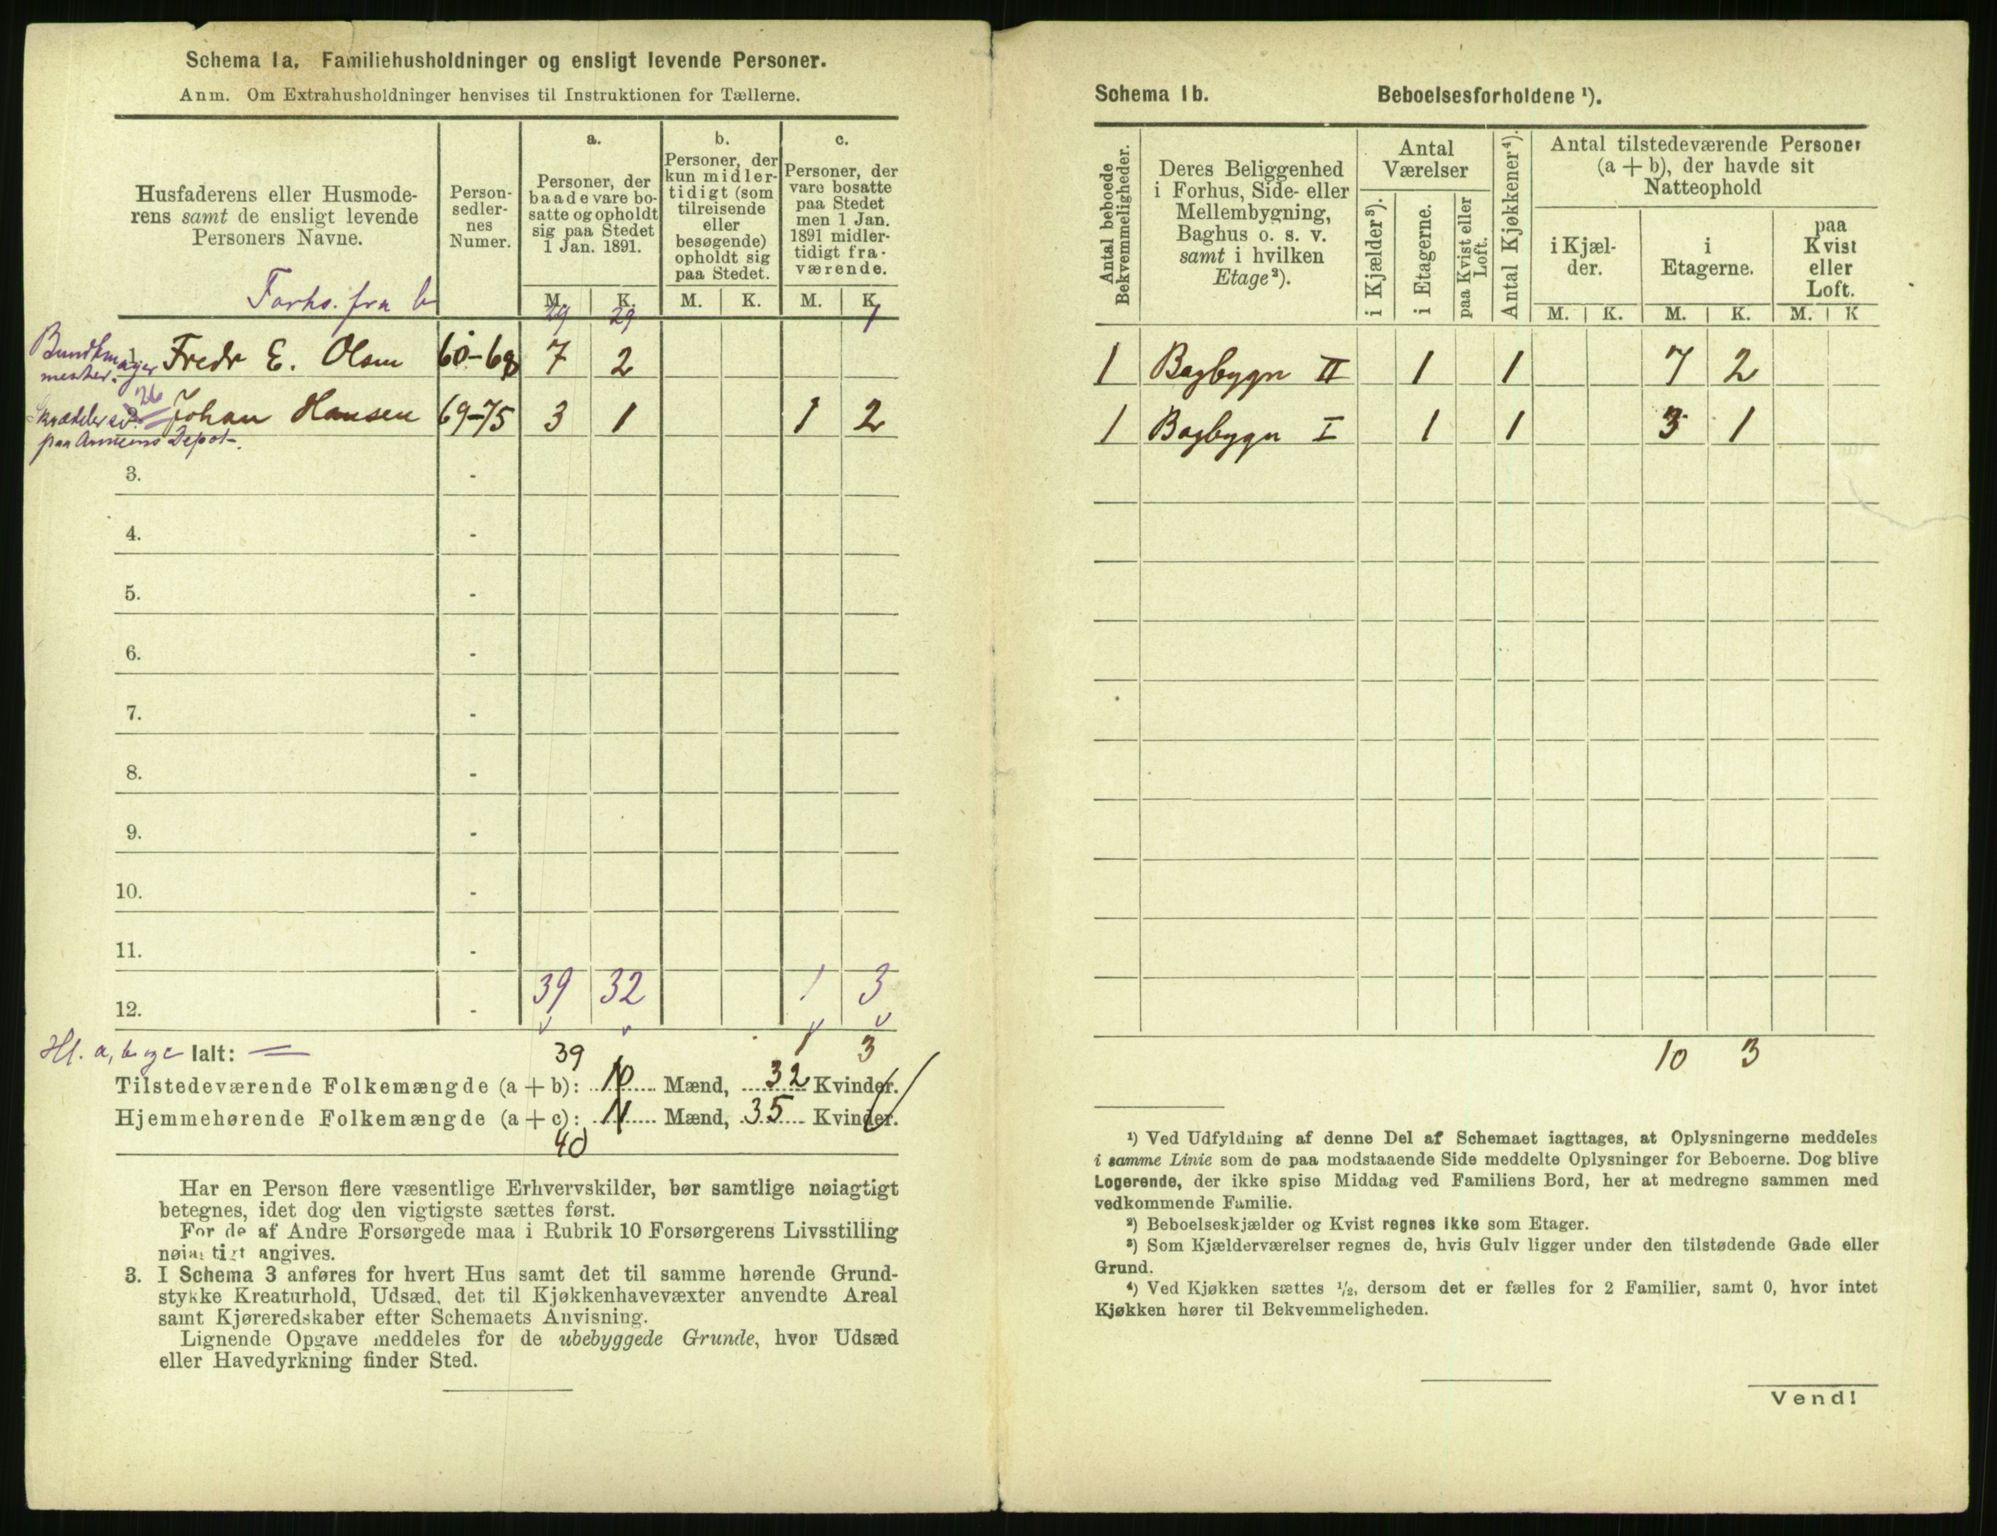 Schema 1a. Familiehusholdninger og ensligt levende Personer.
Anm. Om Extrahusholdninger henvises til Instruktionen for Tællerne.
Husfaderens eller Husmode-
rens samt de ensligt levende
Personers Navne.
Person-
sedler-
nes
Numer.
a.
Personer, der
baade vare bo-
satte og opholdt
sig paa Stedet
1 Jan. 1891.
b.
Personer, der
kun midler-
tidigt (som
tilreisende
eller
besøgende)
opholdt sig
paa Stedet.
c.
Personer, der
vare bosatte
paa Stedet
men 1 Jan.
1891 midler-
tidigt fra-
værende.
M. K. M. K. M. K.
fra b 29 29 1
Fredr E. Olsen 60-68 7 2
26
Johan Hansen 69-75 3 1 1 2
paa Depot.
3. -
4. -
5. -
6. -
7. -
8. -
9. -
10. -
11. -
12. - 39 32 1 3
Hl. a, b og c Ialt: 39 1 3
Tilstedeværende Folkemængde (a + b): 10 Mænd, 32 Kvinder.
Hjemmehørende Folkemængde (a + c): 11 Mænd, 35 Kvinder.
40
Har en Person flere væsentlige Erhvervskilder, bør samtlige nøiagtigt
betegnes, idet dog den vigtigste sættes først.
For de af Andre Forsørgede maa i Rubrik 10 Forsørgerens Livsstilling
nøiagtigt angives.
3. I Schema 3 anføres for hvert Hus samt det til samme hørende Grund-
stykke Kreaturhold, Udsæd, det til Kjøkkenhavevæxter anvendte Areal
samt Kjøreredskaber efter Schemaets Anvisning.
Lignende Opgave meddeles for de ubebyggede Grunde, hvor Udsæd
eller Havedyrkning finder Sted.
Schema 1b. Beboelsesforholdene ¹).
Antal beboede
Bekvemmeligheder.
Deres Beliggenhed
i Forhus, Side- eller
Mellembygning,
Baghus o. s. v.
samt i hvilken
Etage ²).
Antal
Værelser
i Kjælder ³).
i Etagerne.
paa Kvist eller
Loft.
Antal Kjøkkener ⁴).
Antal tilstedeværende Personer
(a + b), der havde sit
Natteophold
i Kjæl-
der.
i
Etagerne.
paa
Kvist
eller
Loft.
M. K. M. K. M. K
1 Bagbygn II 1 1 7 2
1 Bagbygn I 1 1 3 1
10 3
¹) Ved Udfyldning af denne Del af Schemaet iagttages, at Oplysningerne meddeles
i samme Linie som de paa modstaaende Side meddelte Oplysninger for Beboerne. Dog blive
Logerende, der ikke spise Middag ved Familiens Bord, her at medregne sammen med
vedkommende Familie.
²) Beboelseskjælder og Kvist regnes ikke som Etager.
³) Som Kjælderværelser regnes de, hvis Gulv ligger under den tilstødende Gade eller
Grund.
⁴) Ved Kjøkken sættes ½, dersom det er fælles for 2 Familier, samt 0, hvor intet
Kjøkken hører til Bekvemmeligheden.
Vend!